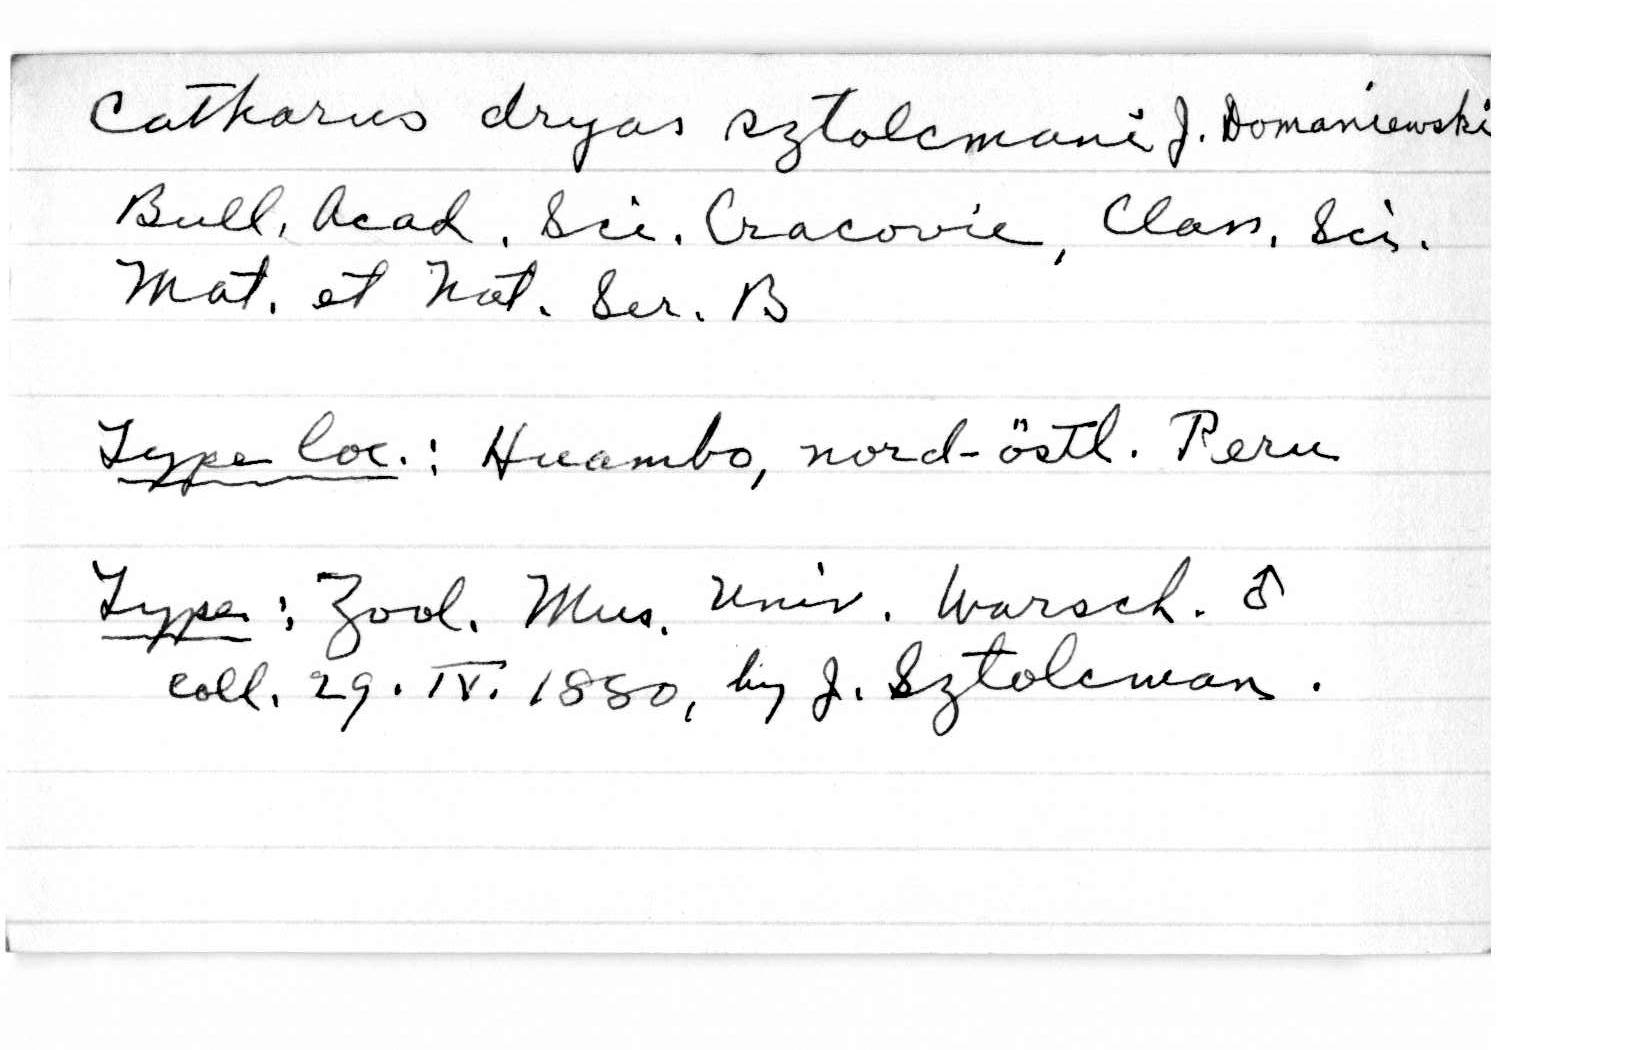 Catharus dryas sztolcmani J. Domaniewski
Bull. Acad. Sci. Cracovie, Class. Sci.
Mat. et Nat. Ser. B
Type loc.: Huambo, nord-östl. Peru
Type: Zool. Mus. Univ. Warsch. ♂
coll. 29. IV. 1880, by J. Sztolcman.